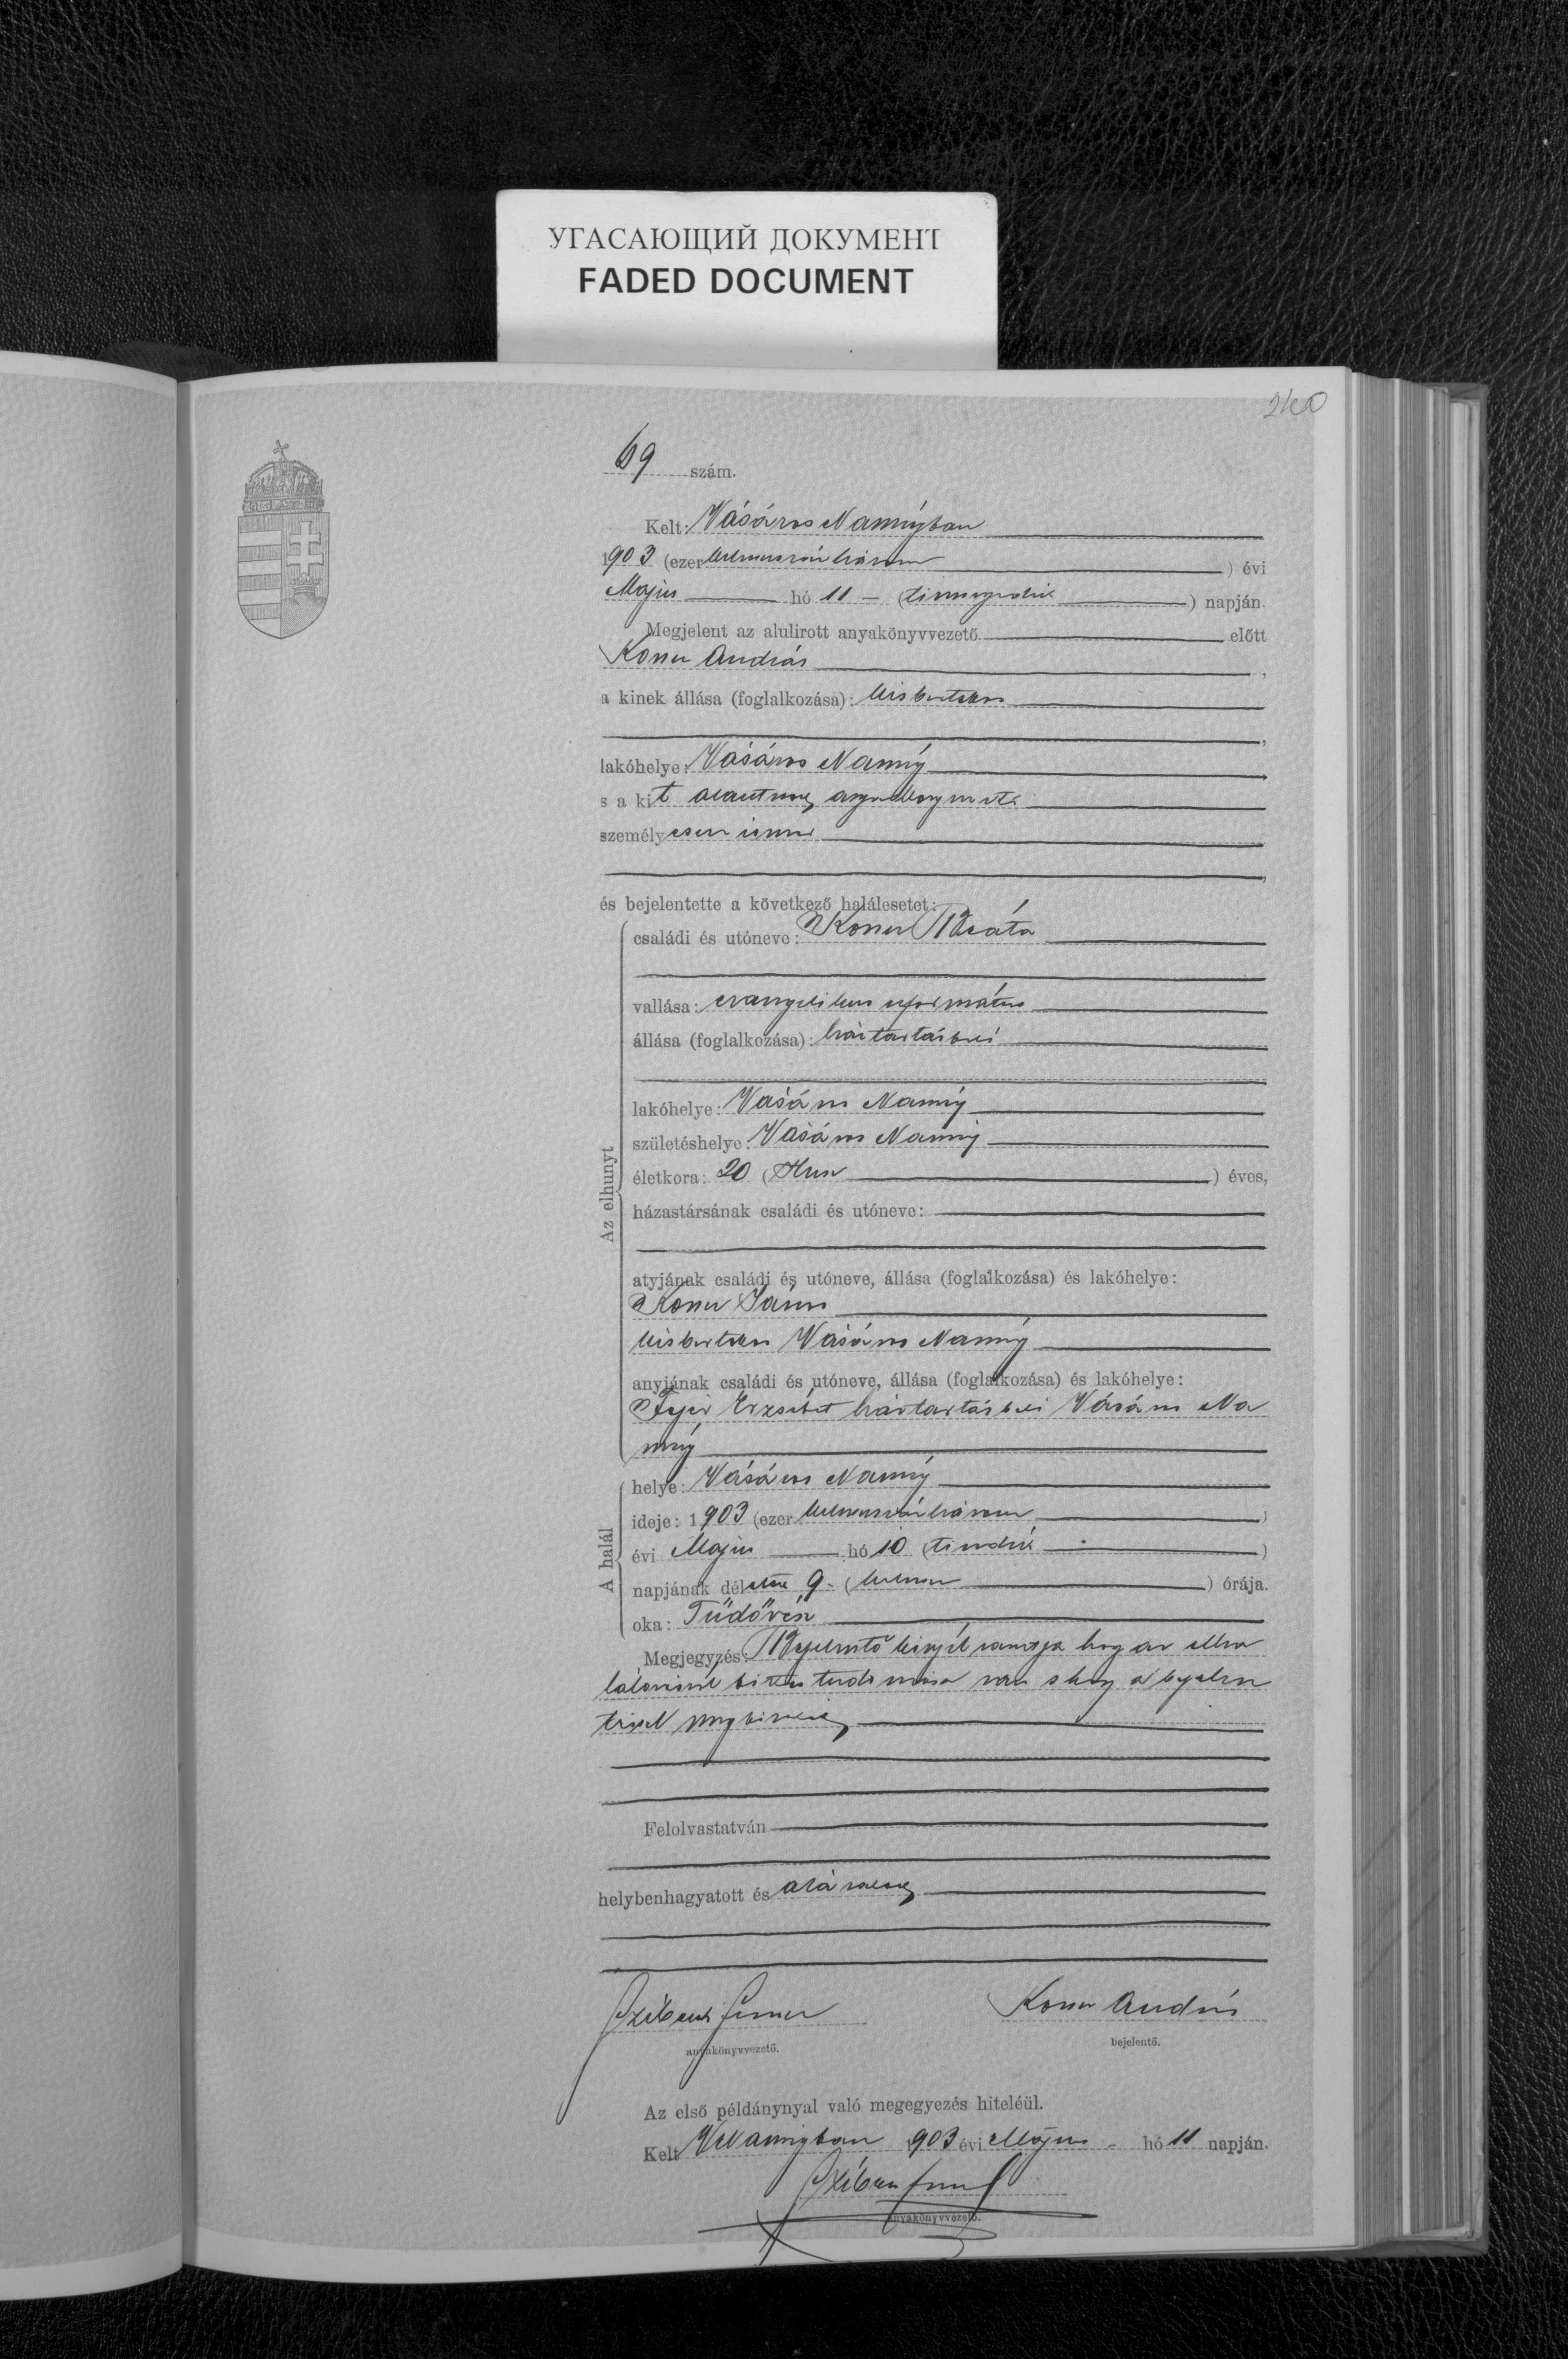 УГАСАЮЩИЙ ДОКУМЕНТ
FADED DOCUMENT
240
69 szám.
Kelt: Vásáros Naményban
1903 (ezer kilenczszáz három) évi
Május hó 11 (tizenegyedik) napján.
Megjelent az alulirott anyakönyvvezető előtt
András,
a kinek állása (foglalkozása): kisbirtokos
lakóhelye: Vásáros Namény
s a kit alantirott anyakönyvvezető
személyesen ismer
és bejelentette a következő halálesetet:
Az elhunyt
családi és utóneve:
vallása: evangelikus református
állása (foglalkozása): háztartásbeli
lakóhelye: Vásáros Namény
születéshelye: Vásáros Namény
életkora: 20 (Husz) éves,
házastársának családi és utóneve:
atyjának családi és utóneve, állása (foglalkozása) és lakóhelye:
János
kisbirtokos Vásáros Namény
anyjának családi és utóneve, állása (foglalkozása) és lakóhelye:
Erzsébet háztartásbeli Vásáros Na
mény
A halál
helye: Vásáros Namény
ideje: 1903 (ezer kilenczszáz három)
évi Május hó 10 (tizedik)
napjának délelőtt 9 (kilencz) órája.
oka: Tüdővész
Megjegyzés: Bejelentő kijelenti hogy az elha
lálozásról biztos tudomása van s hogy a bejelen
tésSel megbizatott
Felolvastatván
helybenhagyatott és aláiratott
András
anyakönyvvezető.
bejelentő.
Az első példánynyal való megegyezés hiteléül.
Kelt VNaményban 1903 évi Május hó 11 napján.
anyakönyvvezető.